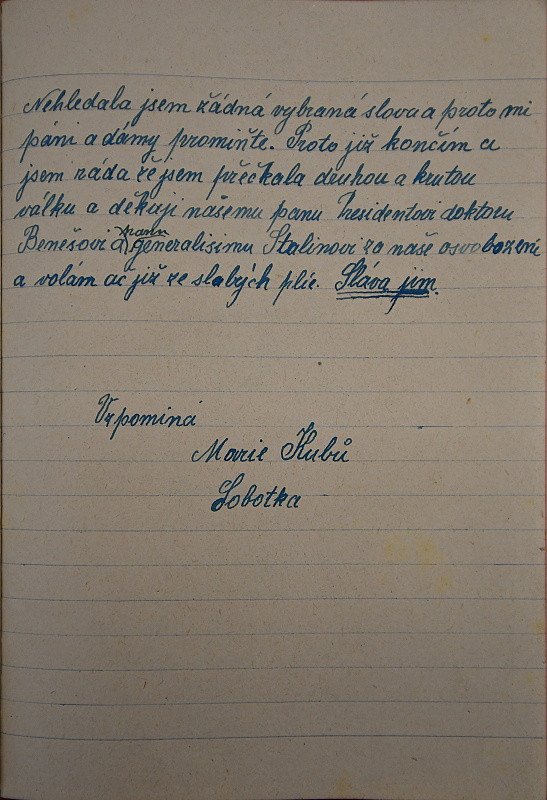 Nehledala jsem žádná vybraná slova a proto mi
páni a dámy promiňte. Proto již končím a
jsem ráda že jsem přečkala druhou a krutou
válku a děkuji našemu panu Presidentovi doktoru
Benešovi a panu generalisimu Stalinovi za naše osvobození
a volám ač již ze slabých plic. Sláva jim.
Vzpomíná
Marie Kubů
Sobotka